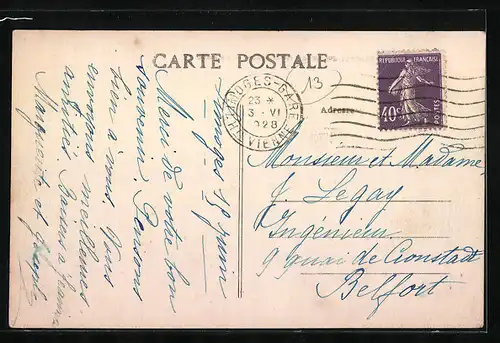 CARTE POSTALE
LIMOGES-GARE
23 *
3 · VI
1928
VIENNE
13
Adresse
REPUBLIQUE FRANÇAISE
40c
POSTES
Limoges juin
Merci de votre bon
souvenir. Pensons
bien à vous. Vous
envoyons meilleures
amitiés. Baisers à
Marguerite et
Monsieur et Madame
J. Legay
Ingénieur
9 quai de Cronstadt
Belfort